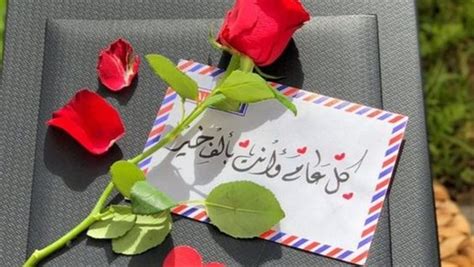 كل عام وأنت بألف خير